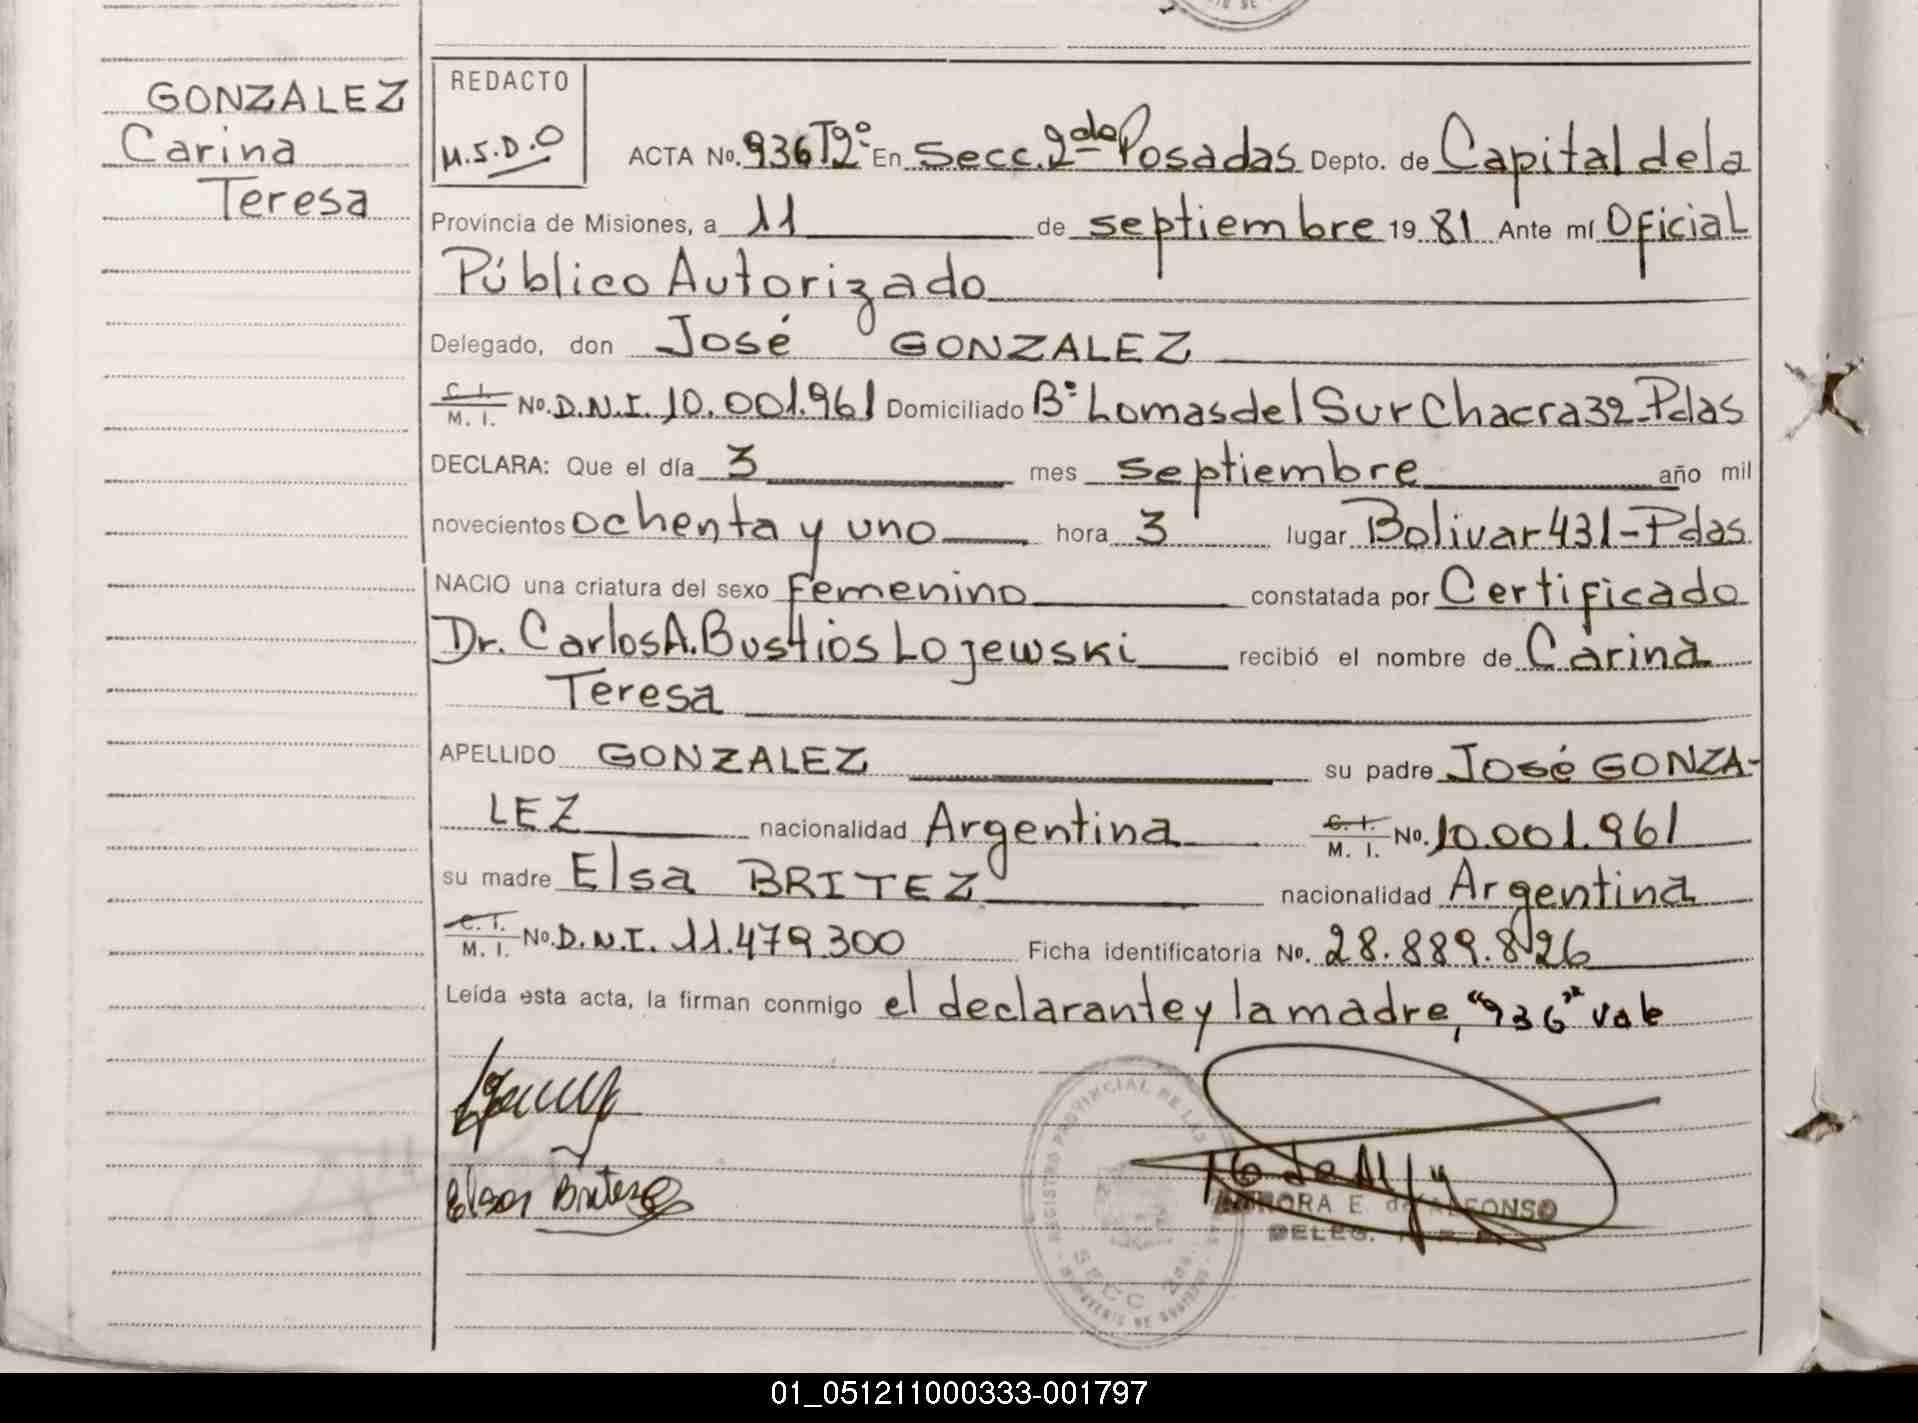 GONZALEZ
Carina
Teresa
REDACTO
M.S.D.O
ACTA No. 936 Tº2º En Secc. 2da Posadas Depto. de Capital de la
Provincia de Misiones, a 11 de septiembre 19 81 Ante mí Oficial
Público Autorizado
Delegado, don José GONZALEZ
C. I.
M. I. No. D.N.I. 10.001.961 Domiciliado Bº Lomas del Sur Chacra 32-Pdas
DECLARA: Que el día 3 mes septiembre año mil
novecientos ochenta y uno hora 3 lugar Bolivar 431-Pdas.
NACIO una criatura del sexo femenino constatada por Certificado
Dr. Carlos A. Bustios Lojewski recibió el nombre de Carina
Teresa
APELLIDO GONZALEZ su padre José GONZA-
LEZ nacionalidad Argentina C. I.
M. I. No. 10.001.961
su madre Elsa BRITEZ nacionalidad Argentina
C. I.
M. I. No. D.N.I. 11.479.300 Ficha identificatoria No. 28.889.826
Leída esta acta, la firman conmigo el declarante y la madre, "936" vale
Elsa Britez
REGISTRO PROVINCIAL DE LAS
SECC 2da
E. de ALFONSO
DELEG.
01_051211000333-001797